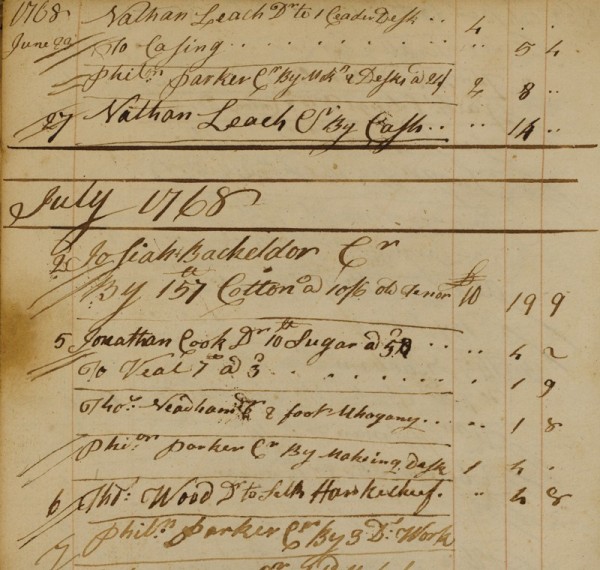 1768 Nathan Leach Dr to 1 Ceader Desk .. 4 . .
June 20 To Casing .. 5 4
Philn. Parker Cr By Makn 2 Desks a 24/ 2 8 ..
27 Nathan Leach Cr By Cash .. .. 14 ..
July 1768
2 Josiah Bacheldor Cr
By 157 lb Cotton a 10/6 old tenor £10 19 9
5 Jonathan Cook Dr 10 lb Sugar a 5d .. 4 2
To Veal 7 lb a 3 .. 1 9
Thos. Neadham Dr 2 foot Mhogany .. .. 1 8
Philn Parker Cr By Making Desk 1 4 .
6 Thos. Wood Dr to Silk Hankecheef. .. 4 8
7 Philn. Parker Cr By 3 Ds. Work